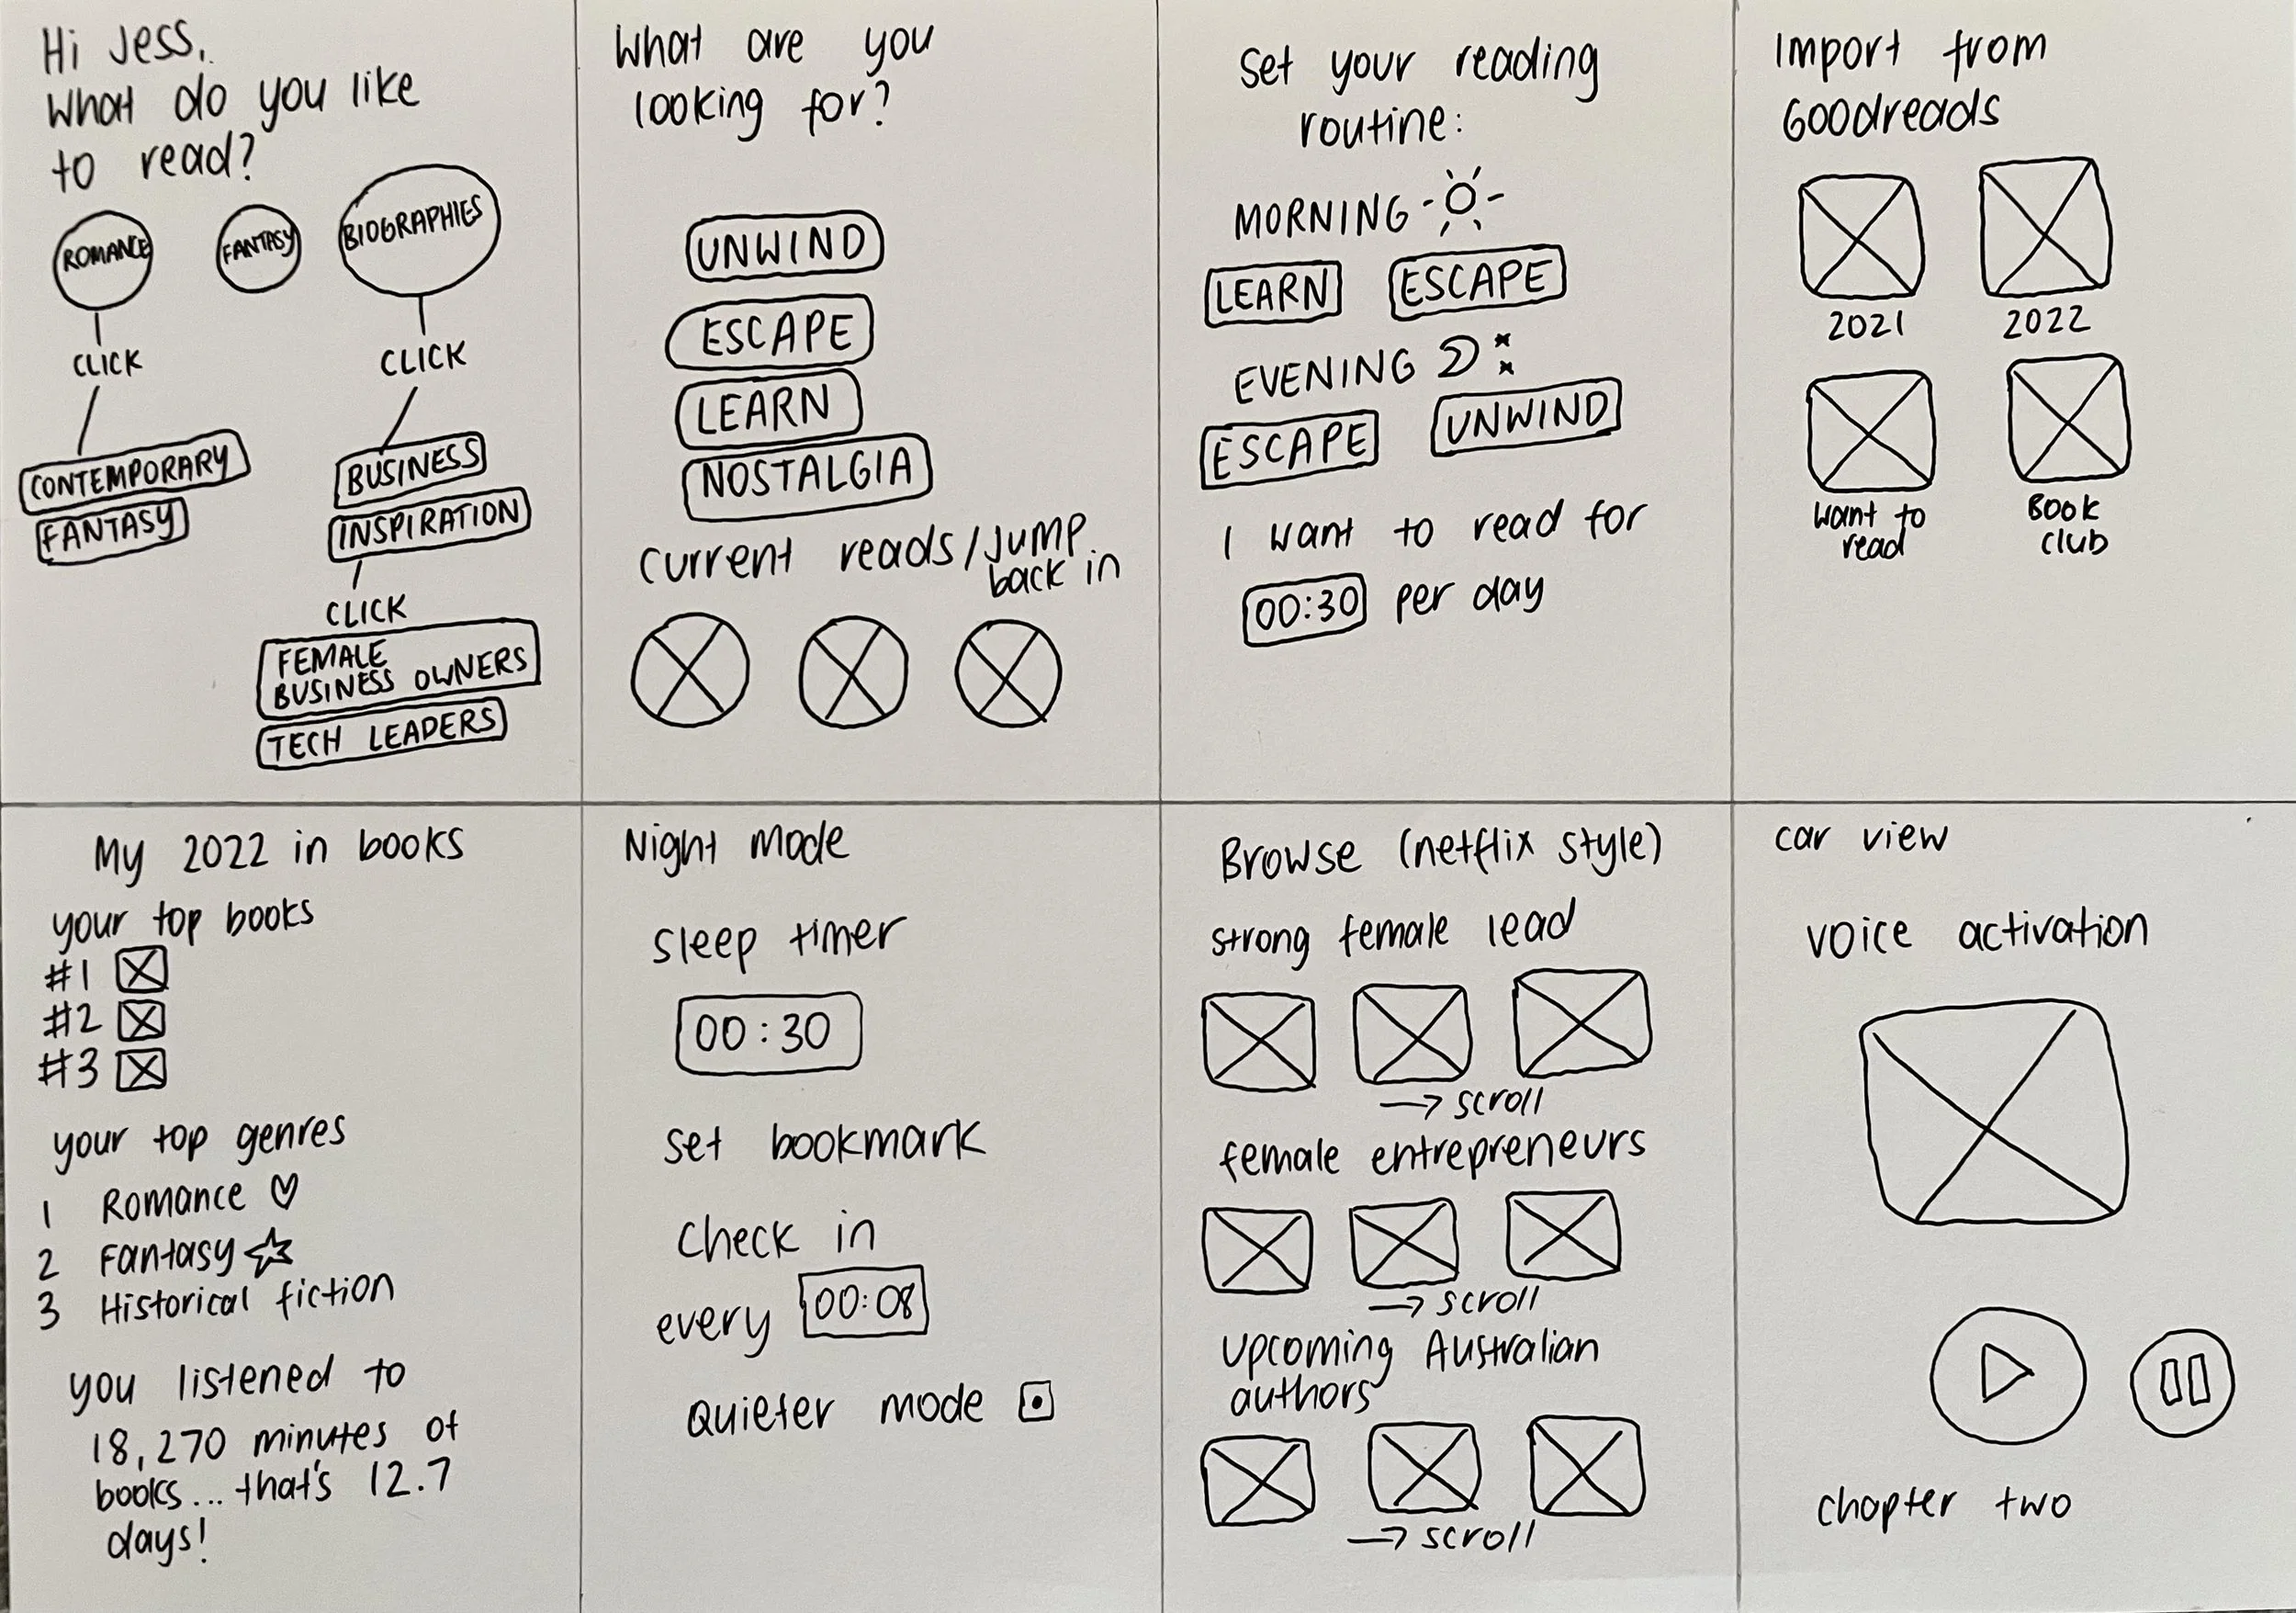 Hi Jess,
What do you like
to read?
ROMANCE
FANTASY
BIOGRAPHIES
CLICK
CLICK
CONTEMPORARY
FANTASY
BUSINESS
INSPIRATION
CLICK
FEMALE
BUSINESS OWNERS
TECH LEADERS
What are you
looking for?
UNWIND
ESCAPE
LEARN
NOSTALGIA
current reads/Jump
back in
Set your reading
routine:
MORNING
LEARN ESCAPE
EVENING
ESCAPE UNWIND
I want to read for
00:30 per day
Import from
Goodreads
2021 2022
Want to
read
Book
club
My 2022 in books
your top books
#1
#2
#3
your top genres
1 Romance
2 Fantasy
3 Historical fiction
you listened to
18,270 minutes of
books... that's 12.7
days!
Night mode
sleep timer
00:30
set bookmark
check in
every 00:08
Quieter mode
Browse (netflix style)
strong female lead
→ scroll
female entrepreneurs
→ scroll
upcoming Australian
authors
→ scroll
car view
voice activation
chapter two